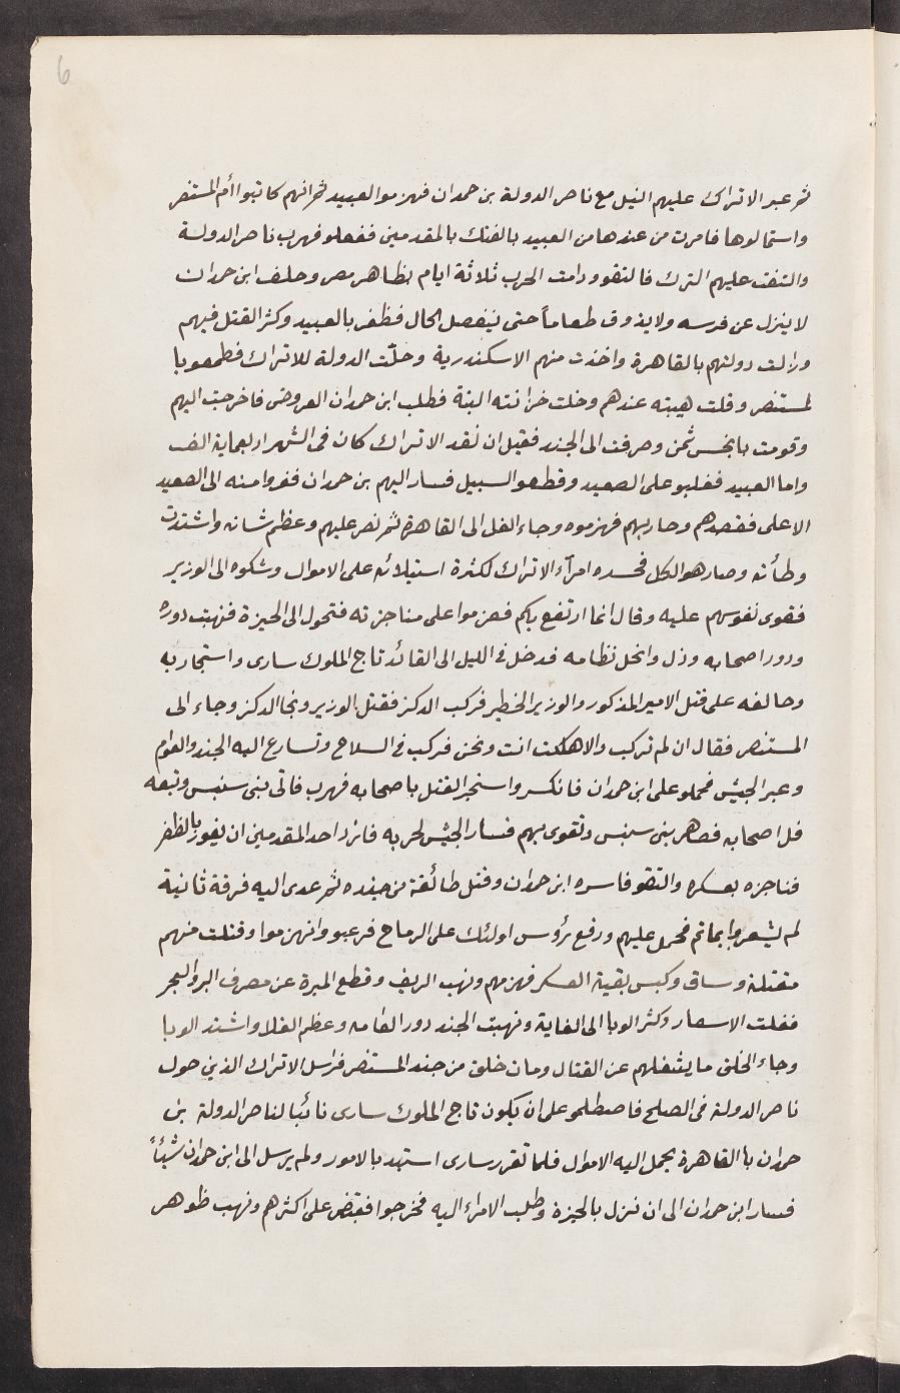 6
ثم عبر الاتراك عليهم النيل مع ناصر الدولة بن حمدان فهزموا العبيد ثم انهم كاتبوا أم المستنصر
واستمالوها فامرت من عندها من العبيد بالفتك بالمقدمين ففعلو فهرب ناصر الدولة
والتفت عليهم الترك فالتقوو دامت الحرب ثلاثة ايام بظاهر مصر وحلف ابن حمدان
لا ينزل عن فرسه ولا يذوق طعاماً حتى ينفصل الحال فظفر بالعبيد وكثر القتل فيهم
وزالت دولتهم بالقاهرة واخذت منهم الاسكندرية وخلّت الدولة للاتراك فطمعوبا
لمستنصر وقلت هيبته عندهم وخلت خزانته البتة فطلب ابن حمدان العروض فاخرجت اليهم
وقومت بابخس ثمن وصرفت الى الجند فقيل ان نقد الاتراك كان فى الشهر اربعماية الف
واما العبيد فغلبو على الصعيد وقطعو السبيل فسار اليهم بن حمدان ففروا منه الى الصعيد
الاعلى فقصدهم وحاربهم فهزموه وجاء الفل الى القاهرة ثم نصر عليهم وعظم شانه واشتدت
وطأته وصار هو الكل فحسده امرآء الاتراك لكثرة استيلائه على الاموال وشكوه الى الوزير
فقوى نفوسهم عليه وقال انما ارتفع بكم فعزموا على مناجزته فتحول الى الجيزة فنهبت دوره
ودور اصحابه وذل وانحل نظامه فدخل فى الليل الى القائد تاج الملوك سارى واستجار به
وحالفه على قتل الامير المذكور والوزير الخطير فركب الدكز فقتل الوزير ونجا الدكز وجاء الى
المستنصر فقال ان لم تركب والا هلكت انت ونحن فركب فى السلاح وتسارع اليه الجند والعوام
وعبر الجيش فحملو على ابن حمدان فانكسر واستحر القتل باصحابه فهرب فاتى بنى سنبس وتبعه
فل اصحابه فصاهر بنى سنبس وتقوى بهم فسار الجيش لحربه فاراد احد المقدمين ان يفوز بالظفر
فناجزه بعسكره والتقو فاسره ابن حمدان وقتل طائفة من جنده ثم عدى اليه فرقة ثانية
لم يشعروا بماتم فحمل عليهم ورفع رؤس اولئك على الرماح فرعبو وانهزموا وقتلت منهم
مقتلة وساق وكبس بقية العسكر فهزمهم ونهب الريف وقطع الميرة عن مصر فى البر والبحر
فغلت الاسعار وكثر الوبا الى الغاية ونهبت الجند دور العامه وعظم الغلا واشتد الوبا
وجاء الخلق ما يشغلهم عن القتال ومات خلق من جند المستنصر فراسل الاتراك الذين حول
ناصر الدولة فى الصلح فاصطلحو على ان يكون تاج الملوك سارى نائبا لناصر الدولة بن
حمدان باالقاهرة يحمل اليه الاموال فلما تقرر سارى استبد بالامور ولم يرسل الى ابن حمدان شيئاً
فسار ابن حمدان الى ان نزل بالجيزة وطلب الامراء اليه فخرجوا فقبض على اكثرهم ونهب ظوهر